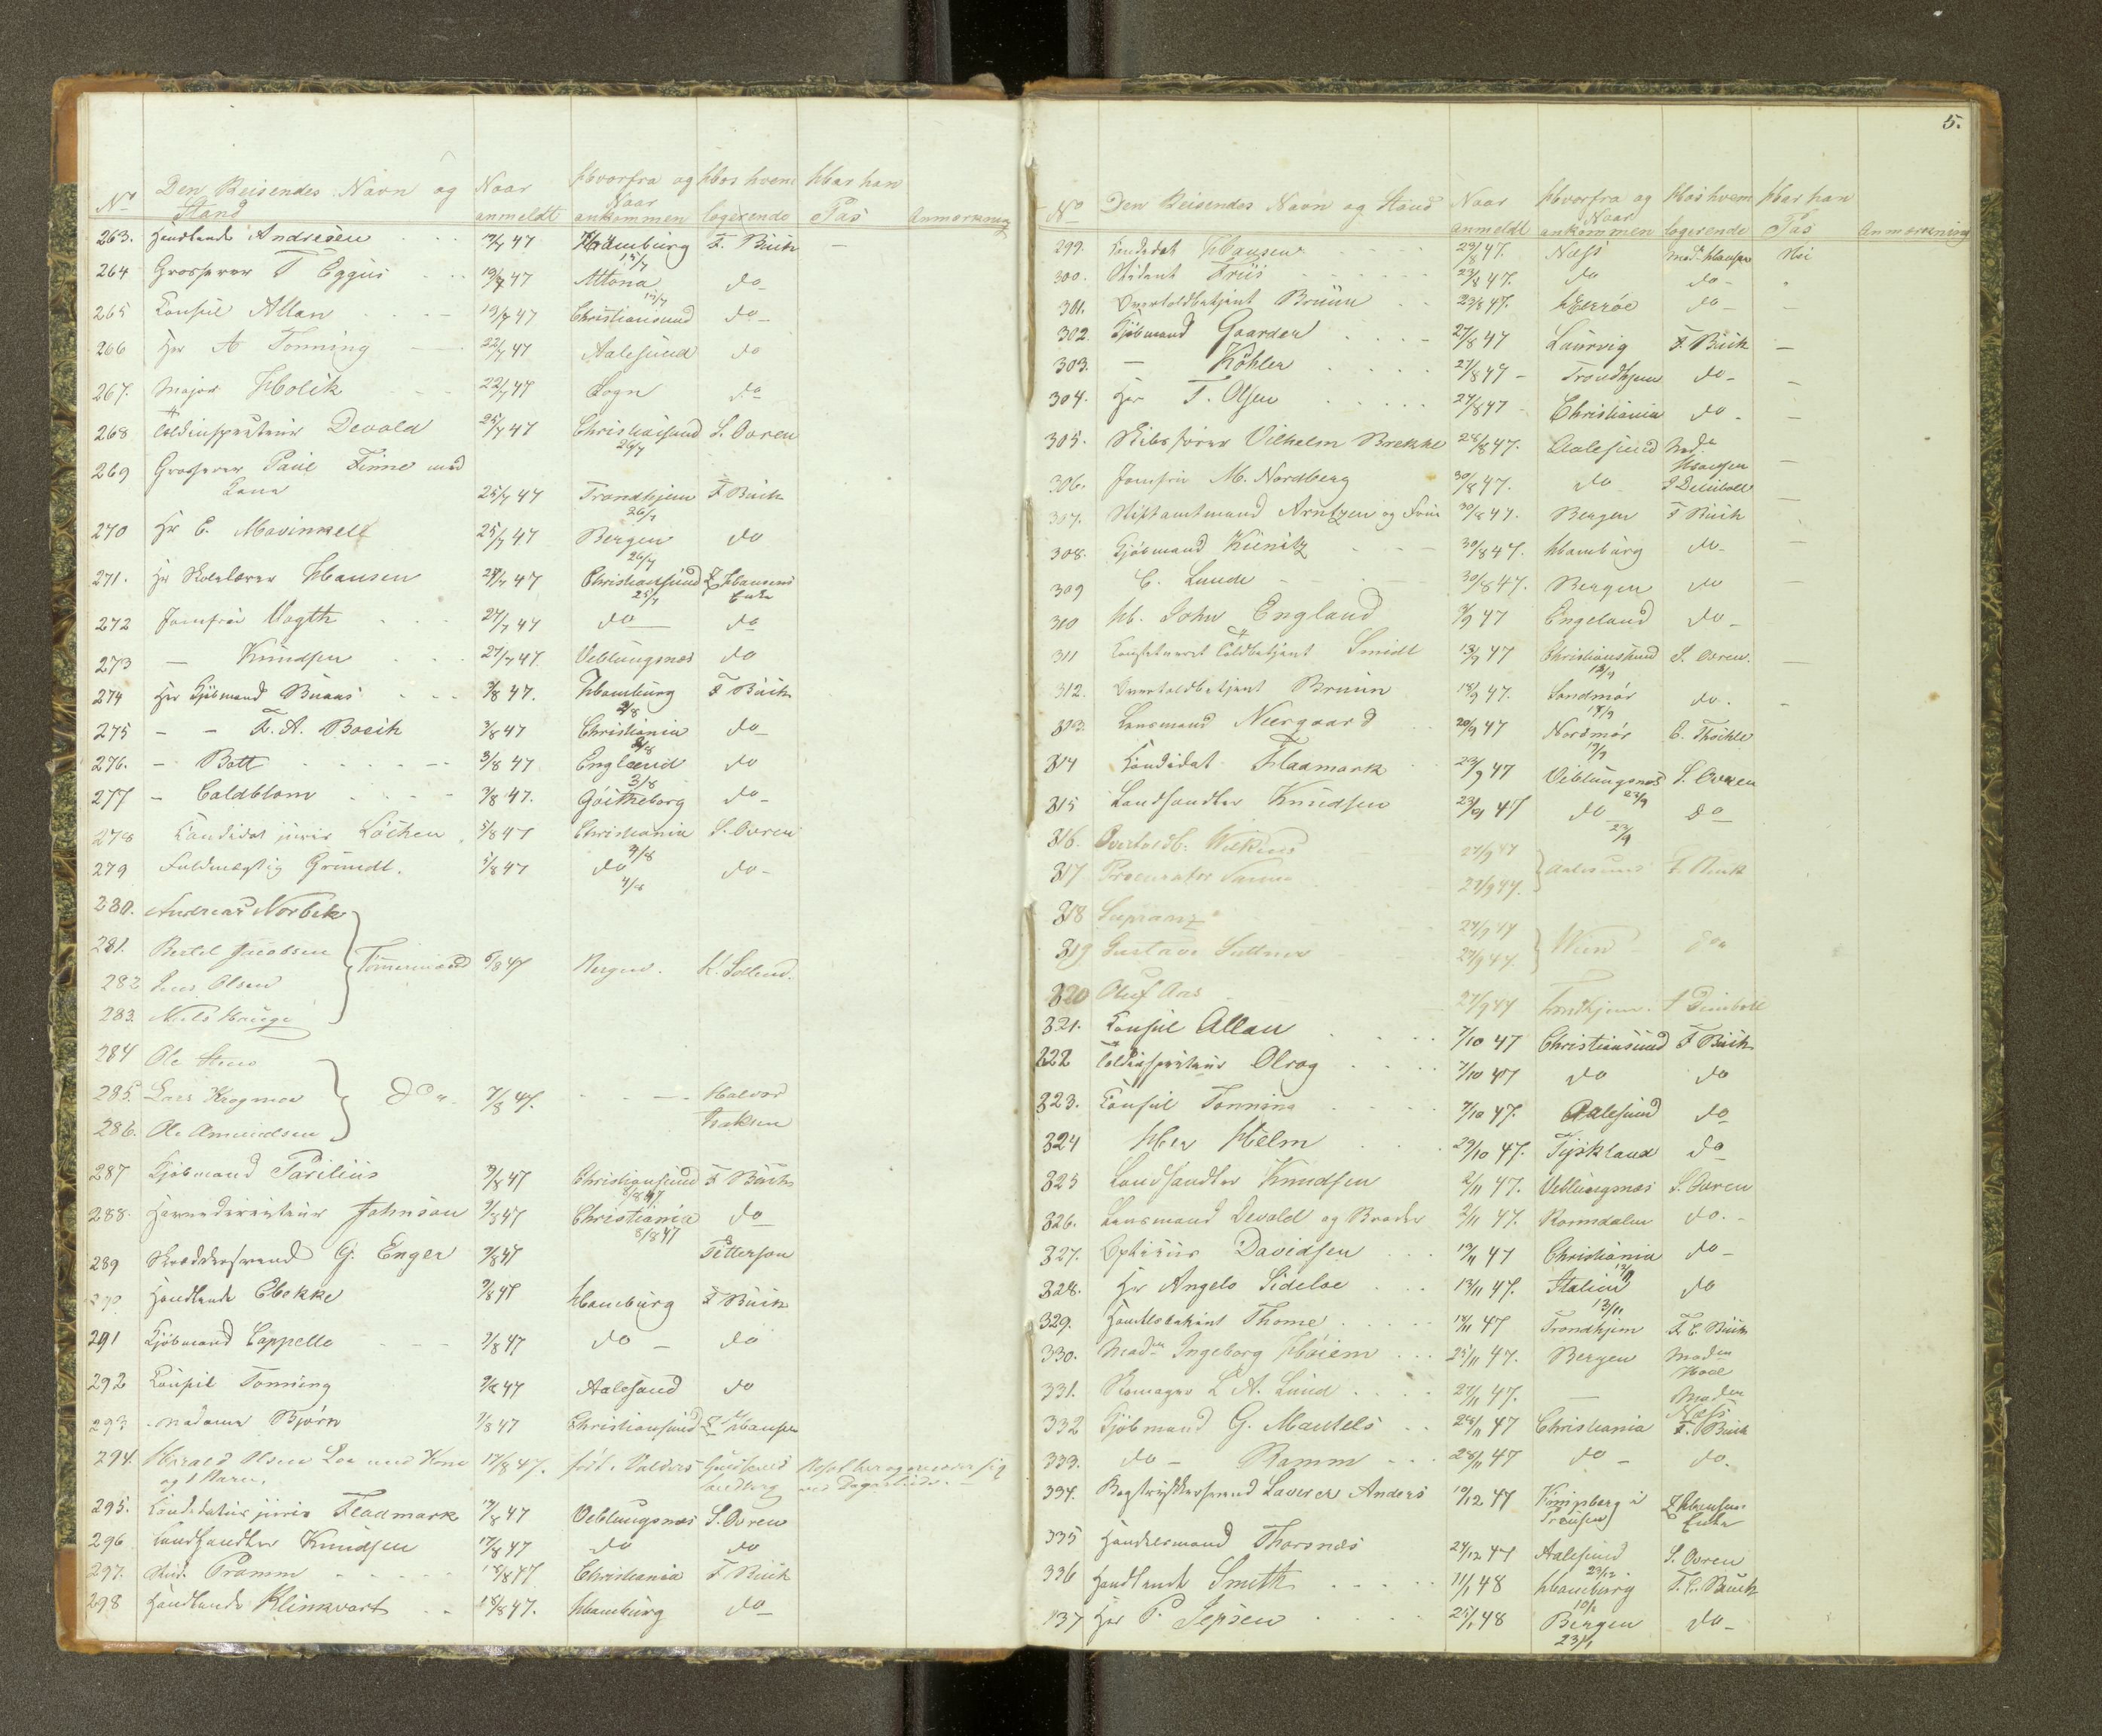 No Den Reisendes Navn og Stand Naar anmeldt Hvorfra og Naar ankommen Hos hvem logerende Har han Pas Anmærkning
263. Handlende Andresen 19/7 47 Hamburg 19/7 F. Buch —
264 Grosserer T Eggus 19/7 47 Altona 19/7 do
265 Consul Allan 19/7 47 Christiansund do
266 Hr A Tonning 22/7 47 Aalesund do
267. Major Holck 22/7 47 Sogn do
268 Toldinspecteur Devold 25/7 47 Christiansund 26/7 S. Ovren
269 Grosserer Paul Finne med
Kone 25/7 47 Trondhjem 26/7 F Buch
270 Hr C. Mowinkell 25/7 47 Bergen 26/7 do
271. Hr Skolelærer Hansen 27/7 47 Christiansund 25/7 Hansens Enke
272 Jomfru Vogth 27/7 47 do do
273 — Knudsen 27/7 47. Veblungsnæs do
274 Hr Kjøbmand Buaas 3/8 47. Hamburg 2/8 F Buch
275 - - F. A. Bosch 3/8 47 Christiania 2/8 do
276. - Bott 3/8 47 England 3/8 do
277 - Caldblom 3/8 47. Gøtheborg do
278 Candidat juris Løchen 5/8 47 Christiania 4/8 S. Ovren
279 Fuldmægtig Grundt. 5/8 47 do 4/8 do
280. Andreas Norbek
281. Bertel Jacobsen Tømmermænd 6/8 47 Bergen.
282 Jens Olsen
283. Niels Hauge
284 Ole
285. Lars Krogmoe Do 7/8 47. Halvor
286. Ole Amundsen Isaksen
287 Kjøbmand Parelius 9/8 47 Christiansund 8/8 47 F Buch
288. Havnedirecteur Johnson 9/8 47 Christiania 8/8 47 do
289 Skræddersvend G. Enger 9/8 47 Petterson
290 Handlende Ebekke 9/8 47 Hamburg F Buch
291 Kjøbmand Cappelle 9/8 47 do do
292 Consul Tonning 9/8 47 Aalesund do
293 Madame Bjørn 9/8 47 Christiansund Hansen
294. Harald Olsen Loe med Kone og 1 Barn. 17/8 47. født i Valders
295. Candidatus juris Fladmark 17/8 47 Veblungsnæs S. Ovren
296 Landhandler Knudsen 17/8 47 do do
297. Stud. Pramm 18/8 47 Christiania F Buch
298 Handlende Klinkvort 18/8 47. Hamburg do
5.
No Den Reisendes Navn og Stand Naar anmeldt Hvorfra og Naar ankommen Hos hvem logerende Har han Pas Anmærkning
299. Candidat Hansen 23/8 47. Næss Mad. Hansen Nei
300. Student Friis 23/8 47. do do
301. Overtoldbetjent Bruun 23/8 47. Herrøe do —
302. Kjøbmand Gaarder 27/8 47 Laurvig F. Buch —
303. — Köhler 27/8 47 Trondhjem do —
304. Hr T. Olsen 27/8 47 Christiania do —
305. Skibsfører Vilhelm Brekke 28/8 47. Aalesund Mad. Hansen —
306. Jomfru M. Nordberg 30/8 47. do
307. Stiftamtmand Arntzen og Frue 30/8 47. Bergen F Buch
308. Kjøbmand Künitz 30/8 47. Hamburg do —
309 C. Lunde 30/8 47. Bergen do —
310 H. John England 4/9 47 England do
311 Constitueret Toldbetjent Smidt 13/9 47 Christiansund 12/9 S. Ovren. —
312. Overtoldbetjent Bruun 18/9 47. Søndmør 18/9 do. —
313. Lensmand Neergaard 20/9 47 Nordmør 19/9
314 Candidat Fladmark 23/9 47 Veblungsnæs 23/9 S. Ovren
315 Landhandler Knudsen 23/9 47 do 23/9 do
316. Overtoldb. Wilkens 27/9 47 Aalesund F. Buch
317 Procurator 27/9 47.
318 27/9 47
319 Gustave Suttner 27/9 47. Wien do
320 Oluf Aas 27/9 47 Trondhjem.
321. Consul Allan 7/10 47 Christiansund F Buch
322 Toldinspecteur Olrog 7/10 47 do do
323. Consul Tonning 7/10 47. Aalesund do
324 Herr Helm 29/10 47. Tyskland do
325 Landhandler Knudsen 2/11 47. Veblungsnæs S. Ovren
326. Lensmand Devold og Broder 2/11 47. Romsdalen do.
327. Opticus Davidsen 13/11 47 Christiania 12/11 do
328. Hr Angelo Sideloe 13/11 47. Italien 13/11 do
329. Handelsbetjent Thome 14/11 47 Trondhjem F. C. Buch
330. Mad. Ingeborg Høiem 25/11 47. Bergen Mad.
331. Skomager L A. Lund 27/11 47. — Mad. Næss
332 Kjøbmand G. Mantels 28/11 47 Christiania F. Buch
333. do Ramm 28/11 47 do do.
334. Bogtrykkersvend Laverer Anders 10/12 47 Hansens Enke
335 Handelsmand Thorsnæs 24/12 47 Aalesund 23/12 S. Ovren
336 Handlende Smith 11/1 48 Hamburg 10/1 F. C. Buch
337 Hr P. Jepsen 25/1 48 Bergen 23/1 do